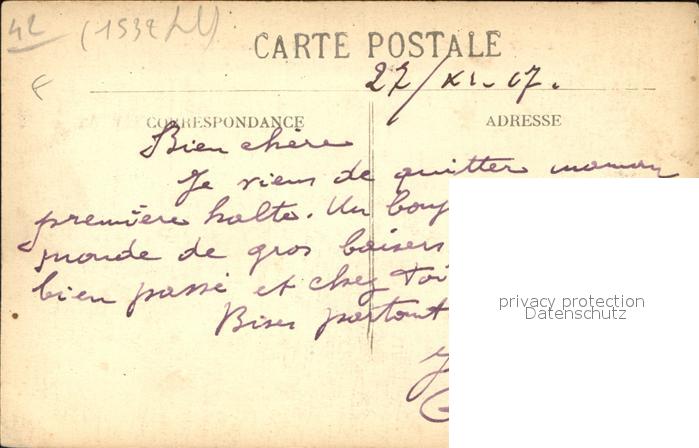 42 (1532
CARTE POSTALE
27/XI-07.
CORRESPONDANCE
ADRESSE
Bien chère
Je viens de quitter maman
première halte. Un
monde de gros baisers
bien passé et chez toi
Bises partout
privacy protection
Datenschutz